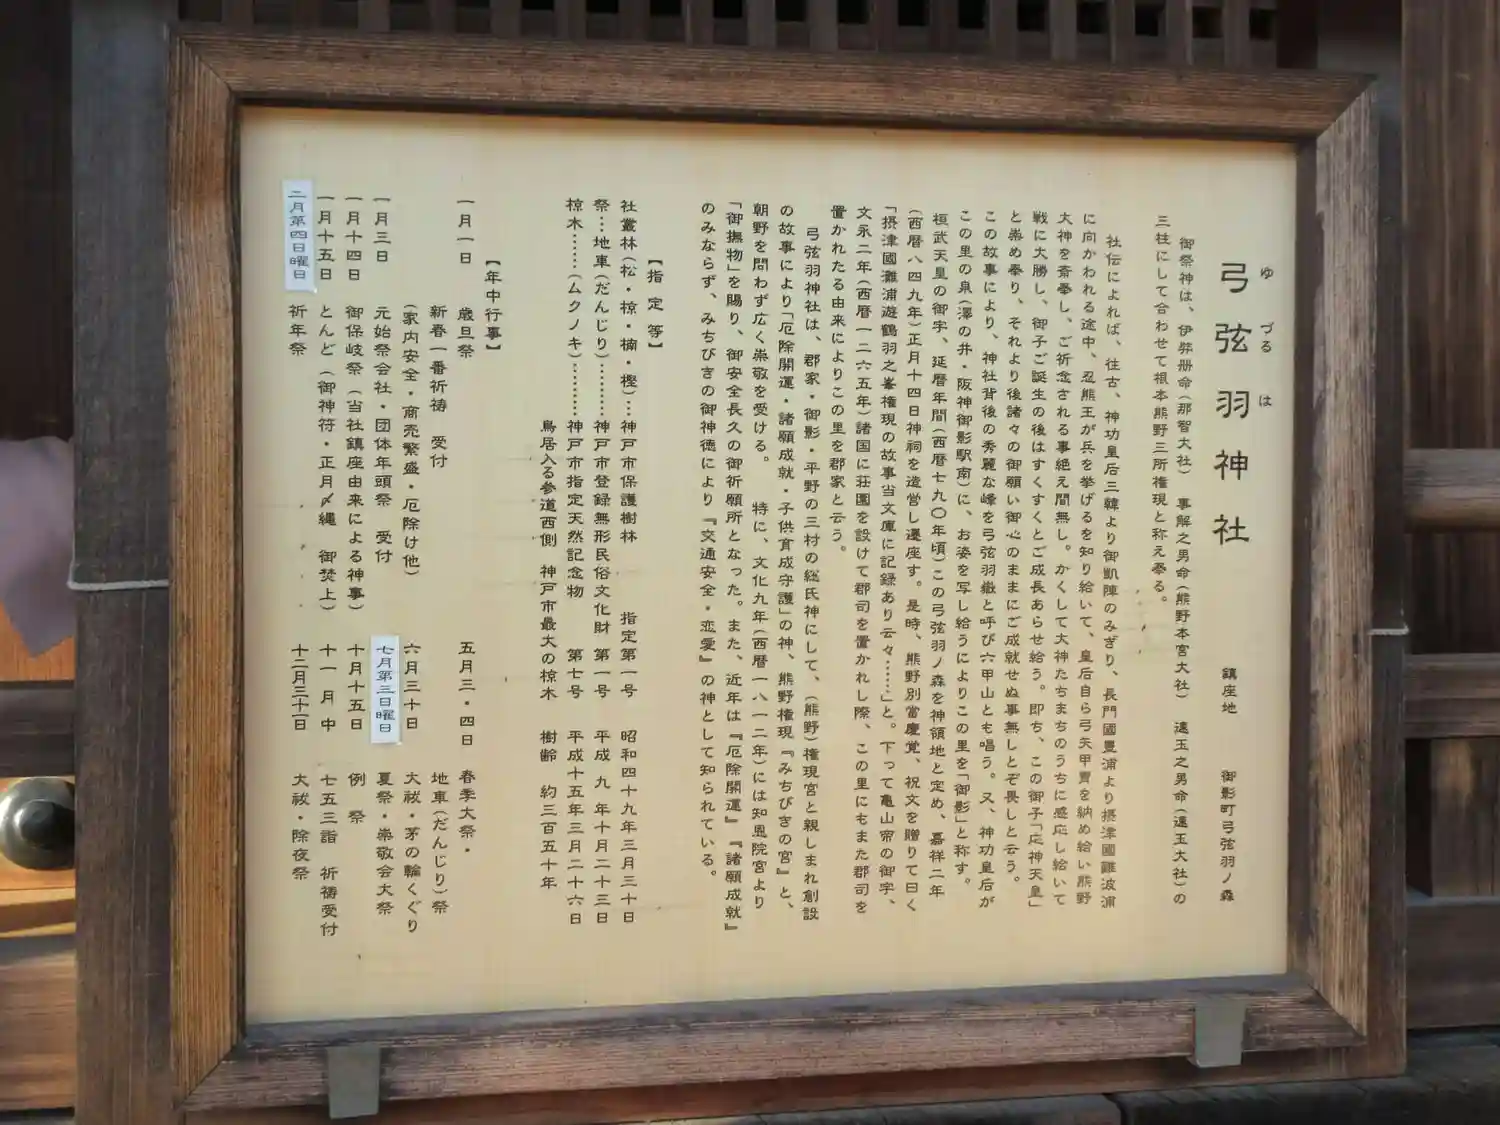 ゆづるは
弓弦羽神社
鎮座地 御影町弓弦羽ノ森
御祭神は、伊弉册命(那智大社) 事解之男命(熊野本宮大社) 速玉之男命(速玉大社)の
三柱にして合わせて根本熊野三所権現と称え奉る。
社伝によれば、往古、神功皇后三韓より御凱陣のみぎり、長門國豊浦より摂津國難波浦
に向かわれる途中、忍熊王が兵を挙げるを知り給いて、皇后自ら弓矢甲冑を納め給い熊野
大神を斎奉し、ご祈念される事絶え間無し。かくして大神たちまちのうちに感応し給いて
戦に大勝し、御子ご誕生の後はすくすくとご成長あらせ給う。即ち、この御子「応神天皇」
と崇め奉り、それより後諸々の御願い御心のままにご成就せぬ事無しとぞ畏しと云う。
この故事により、神社背後の秀麗な峰を弓弦羽嶽と呼び六甲山とも唱う。又、神功皇后が
この里の泉(澤の井・阪神御影駅南)に、お姿を写し給うによりこの里を「御影」と称す。
桓武天皇の御宇、延暦年間(西暦七九〇年頃)この弓弦羽ノ森を神領地と定め、嘉祥二年
(西暦八四九年)正月十四日神祠を造営し遷座す。是時、熊野別當慶覚、祝文を贈りて曰く
「摂津國灘浦遊鶴羽之峯権現の故事当文庫に記録あり云々……」と。下って亀山帝の御宇、
文永二年(西暦一二六五年)諸国に荘園を設けて郡司を置かれし際、この里にもまた郡司を
置かれたる由来によりこの里を郡家と云う。
弓弦羽神社は、郡家・御影・平野の三村の総氏神にして、(熊野)権現宮と親しまれ創設
の故事により「厄除開運・諸願成就・子供育成守護」の神、熊野権現『みちびきの宮』と、
朝野を問わず広く崇敬を受ける。 特に、文化九年(西暦一八一二年)には知恩院宮より
「御撫物」を賜り、御安全長久の御祈願所となった。また、近年は『厄除開運』『諸願成就』
のみならず、みちびきの御神徳により『交通安全・恋愛』の神として知られている。
【指定等】
社叢林(松・椋・楠・樫)…神戸市保護樹林 指定第一号 昭和四十九年三月三十日
祭…地車(だんじり)………神戸市登録無形民俗文化財 第一号 平成 九 年十月二十三日
椋木……(ムクノキ)………神戸市指定天然記念物 第七号 平成十五年三月二十六日
鳥居入る参道西側 神戸市最大の椋木 樹齢 約三百五十年
【年中行事】
一月一日 歳旦祭
新春一番祈祷 受付
(家内安全・商売繁盛・厄除け他)
一月三日 元始祭会社・団体年頭祭 受付
一月十四日 御保岐祭(当社鎮座由来による神事)
一月十五日 とんど(御神符・正月〆縄 御焚上)
二月第四日曜日 祈年祭
五月三・四日 春季大祭・
地車(だんじり)祭
六月三十日 大祓・茅の輪くぐり
七月第三日曜日 夏祭・崇敬会大祭
十月十五日 例 祭
十一月中 七五三詣 祈祷受付
十二月三十一日 大祓・除夜祭